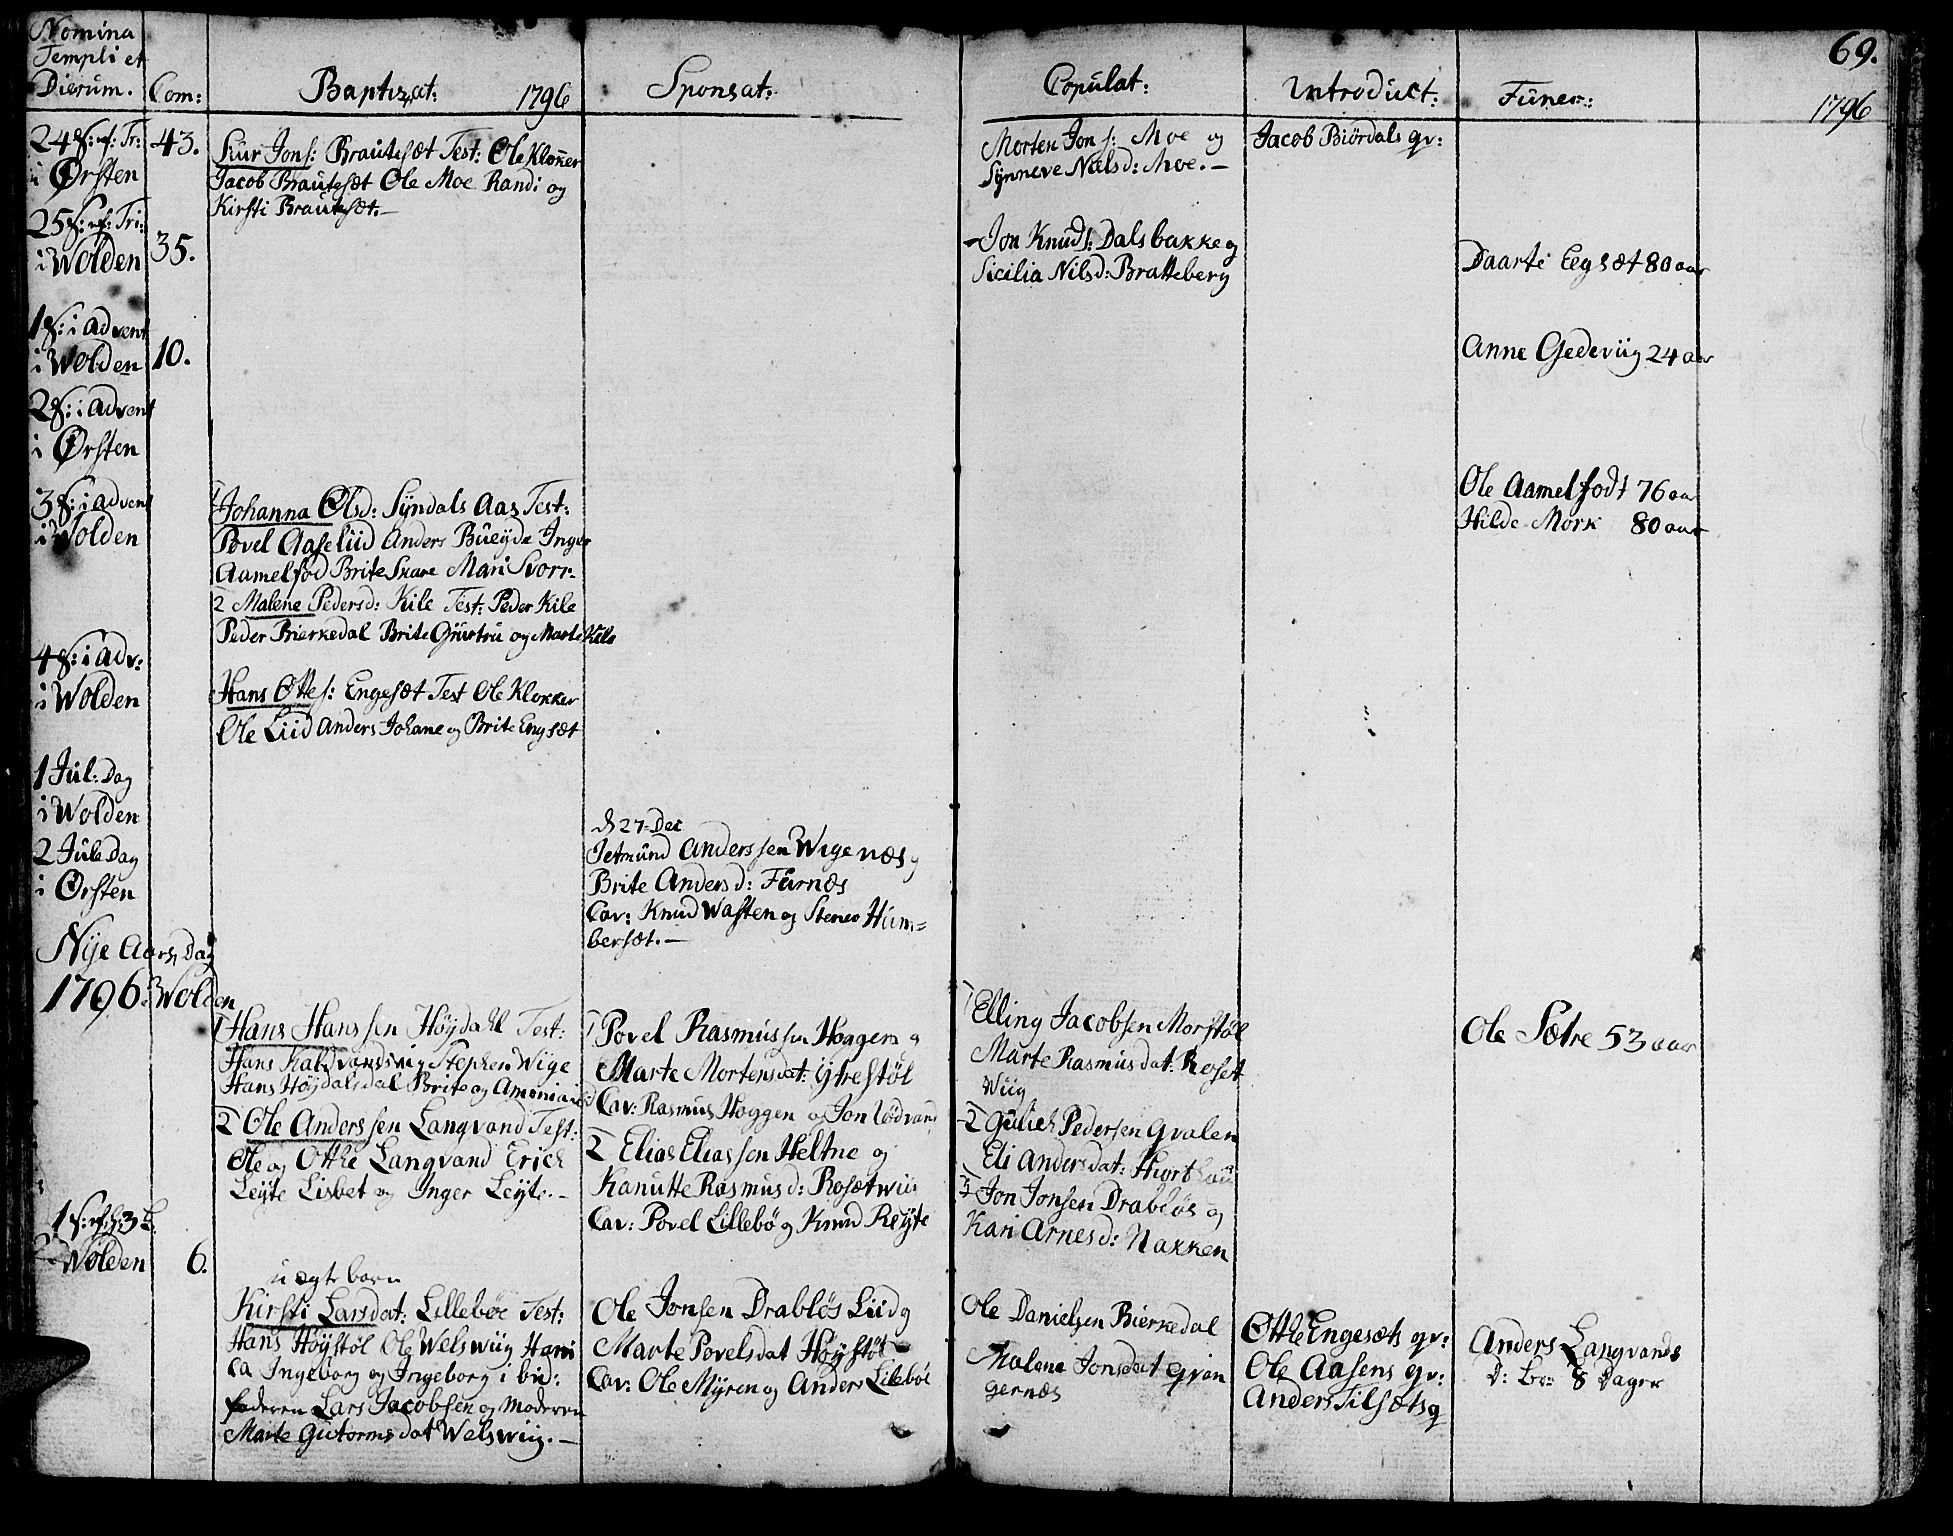 Nomina
Templi et
Dierum.
Com:
Baptizat:
1796
Sponsat:
Copulat:
Introduct:
Funer::
69.
1796
24 S: ef: Tr:
i Ørsten
43.
Siur Jons: Brautesæt Test: Ole Klokker
Jacob Brautesæt Ole Moe Randi og
Kirsti Brautesæt.—
Morten Jons: Moe og
Synneve Nilsd: Moe.—
Jacob Biørdals qv:
25 S: ef: Tri:
i Wolden
35.
Jon Knuds: Dalsbakke og
Sicilia Nilsd: Bratteberg
Daarte Eegsæt 80 aar
1 S: i Advent
i Wolden
10.
Anne Gedeviig 24 aar
2 S: i Advent
i Ørsten
3 S: i Advent
i Wolden
1 Johanna Olsd: Syndals Aas Test:
Povel Aaseliid Anders Bueyde Inger
Aamelfod Brite Skare Mari Svorr-
2 Malene Pedersd: Kile Test: Peder Kile
Peder Bierkedal Brite Giurtru og Marte Kile
Ole Aamelfodt 76 aar
Hilde Mork 80 aar
4 S: i Adv:
i Wolden
Hans Ottes: Engesæt Test Ole Klokker
Ole Liid Anders Johane og Brite Engsæt
1 Jul: Dag
i Wolden
2 Jule Dag
i Ørsten
d 27 Dec
Jetmund Anderssen Wigenæs og
Brite Andersd: Furnæs
Cav: Knud Wasten og Stener Hum=
bersæt.—
Nÿe Aars Dag
1796 i Wolden
1 Hans Hanssen Høydahl Test:
Hans Kaldvandsvig Stephen Wige
Hans Høydalsdal Brite og
2 Ole Anderssen Langvand Test:
Ole og Otthe Langvand Erich
Leyte Lisbet og Inger Leyte.—
1 Povel Rasmussen Hoggen og
Marte Mortensdat: Ytrestøl
Cav: Rasmus Hoggen og Jon Lødvand
2 Elias Eliassen Heltne og
Kanutte Rasmusd: Rosætwiig
Cav: Povel Lillebø og Knud Reyte
1 Elling Jacobsen Morstøl
Marte Rasmusdat: Roset
Wiig
2 Gulich Pedersen Qvalen
Eli Andersdat: Hiorthau
3 Jon Jonsen Drabløs og
Kari Arnesd: Nakken
Ole Sætre 53 aar
1 S: ef: h: 3 K.
i Wolden
6.
uægte barn
Kirsti Larsdat: Lillebøe Test:
Hans Høystøl Ole Welswiig Hans
Ingeborg og Ingeborg i bid:
faderen Lars Jacobsen og Moderen
Marte Gutormsdat Welswiig.—
Ole Jonsen Drabløs Liid og
Marte Povelsdat Høystøl
Cav: Ole Myren og Anders Lilebøe
Ole Danielsen Bierkedal
Malene Jonsdat Gvan
gernæs
Otthe Engesæts qv:
Ole Aasens qv:
Anders Tilsæts q
Anders Langvands
D: br: 8 Dager